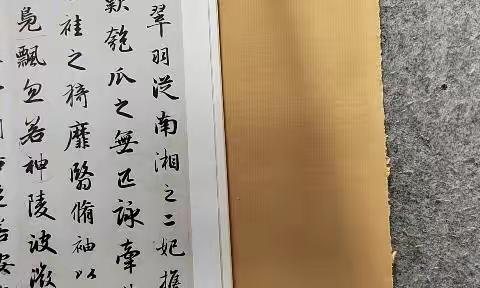 翠羽從南湘之二妃攜
歎匏瓜之無匹詠牽
袿之猗靡翳脩袖以
鳧飄忽若神陵波微